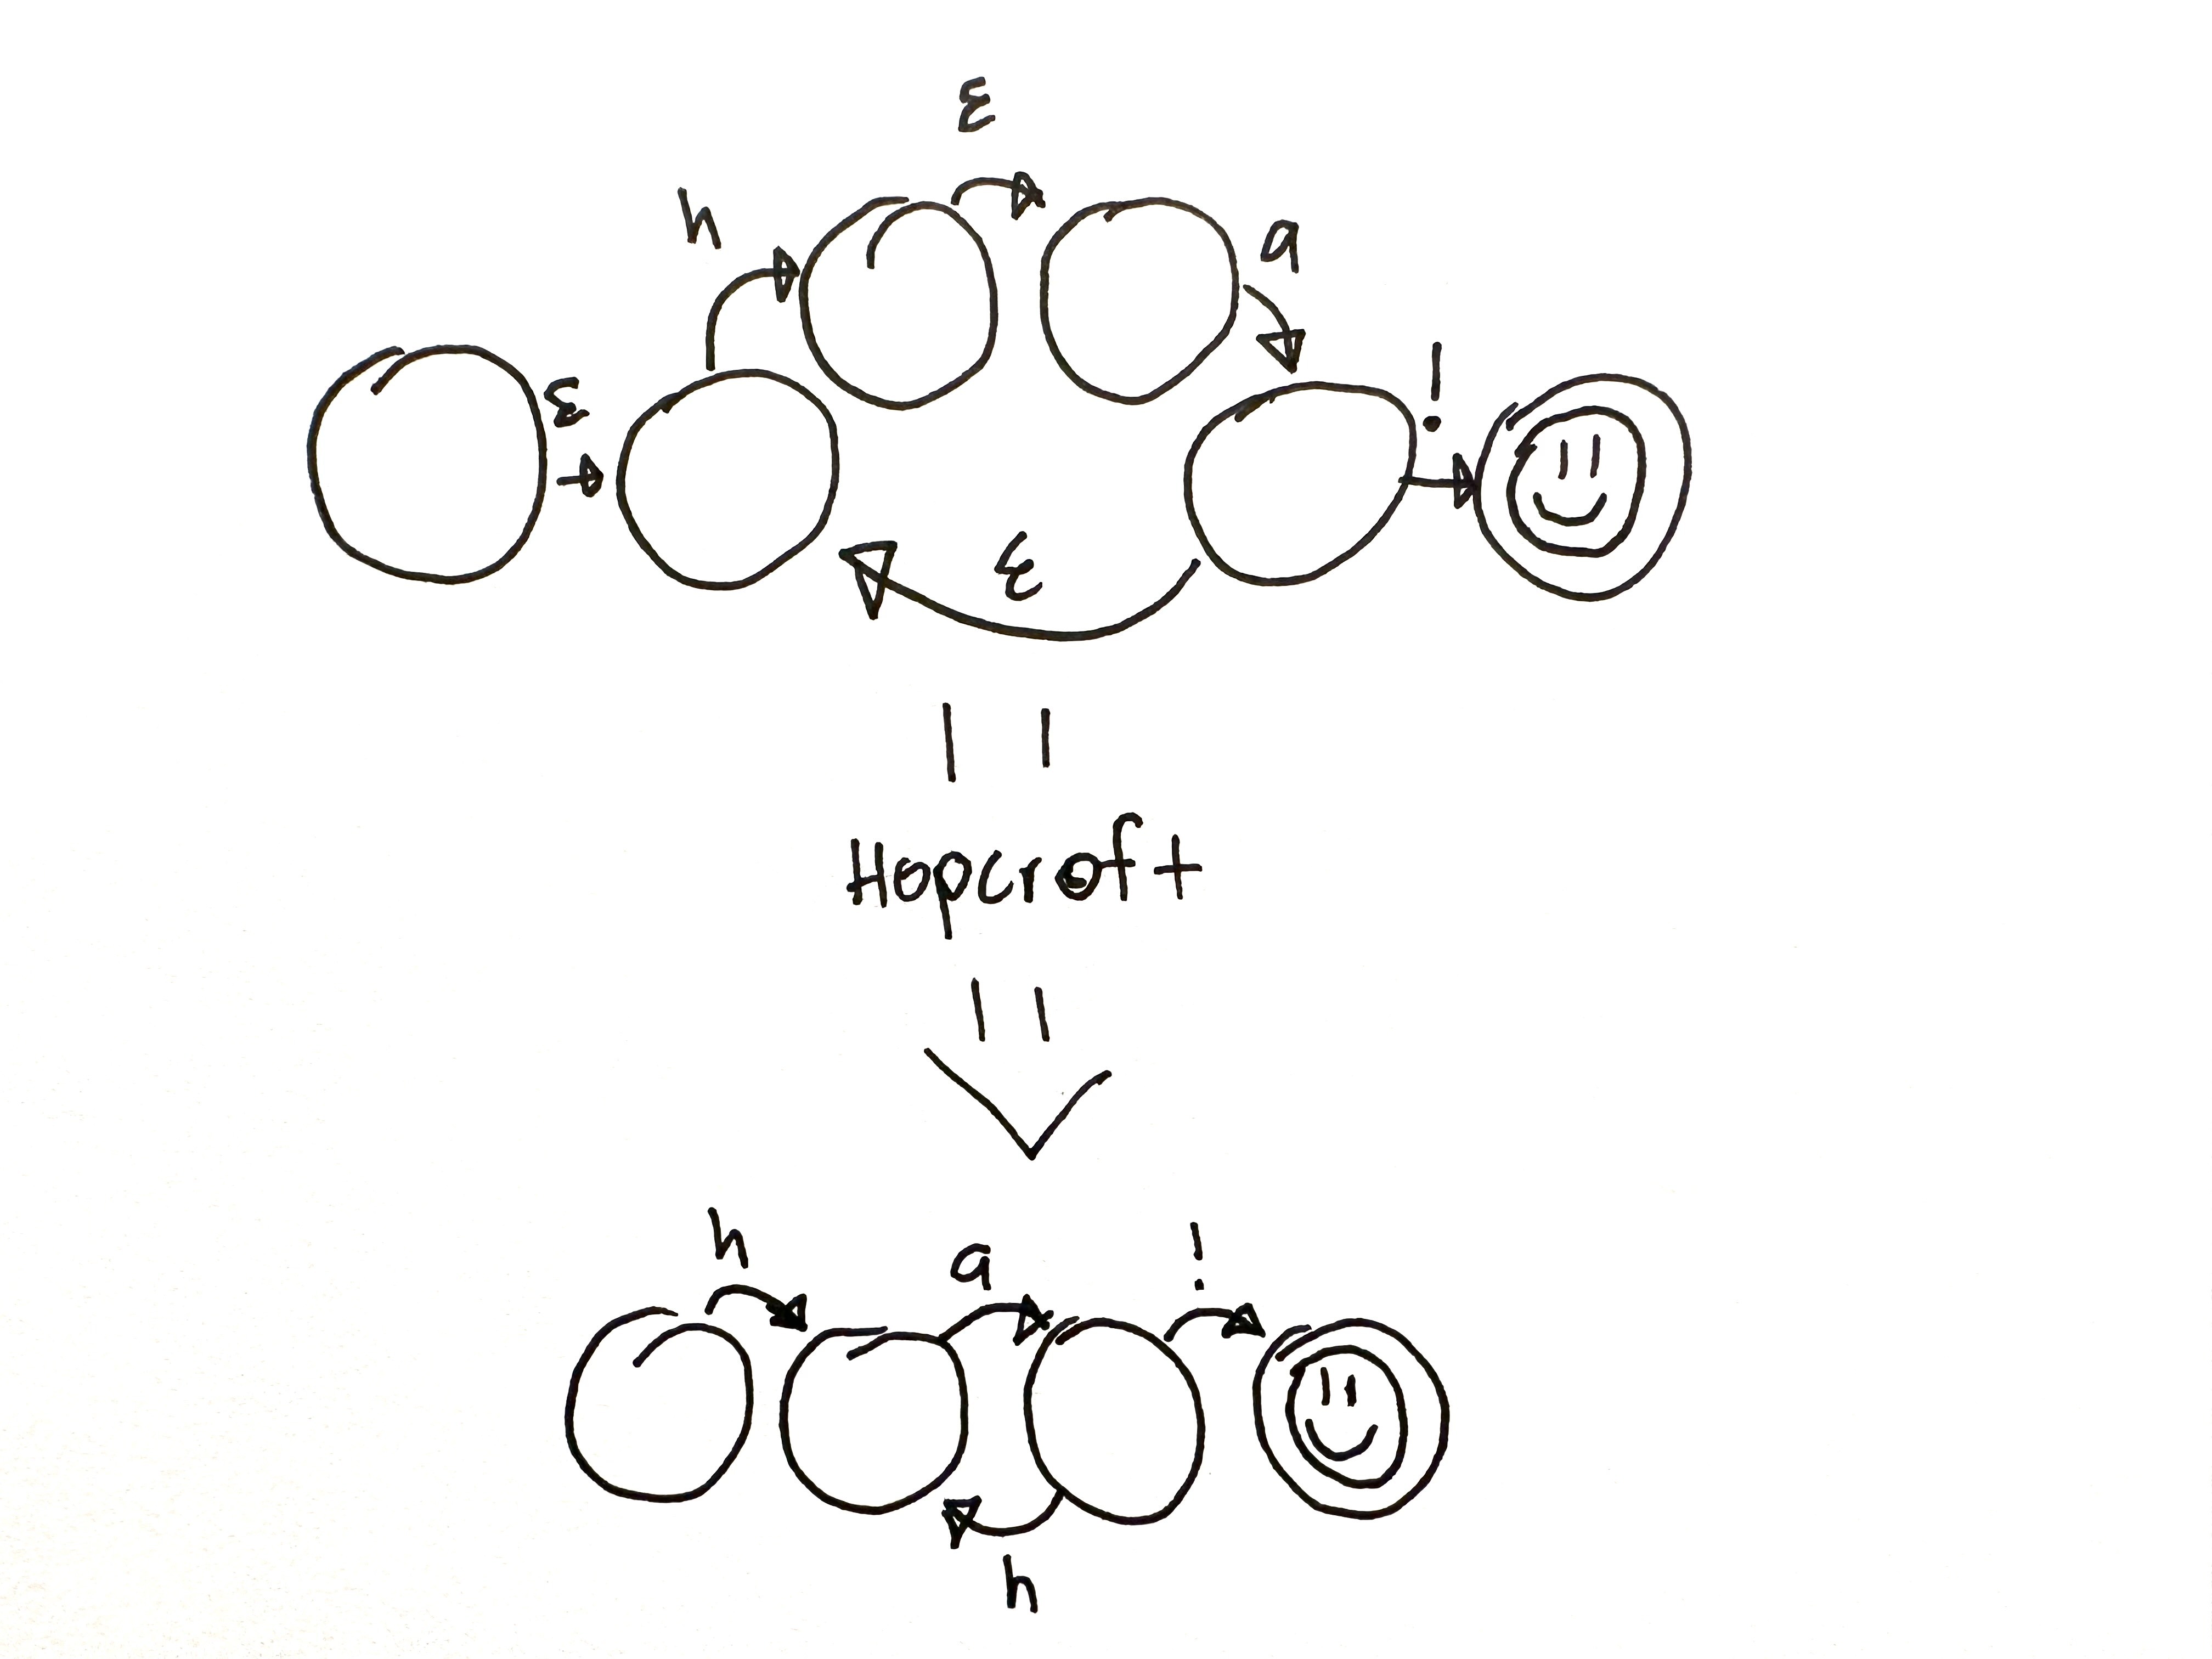 ε
h
a
ε
!
ε
Hopcroft
h
a
!
h